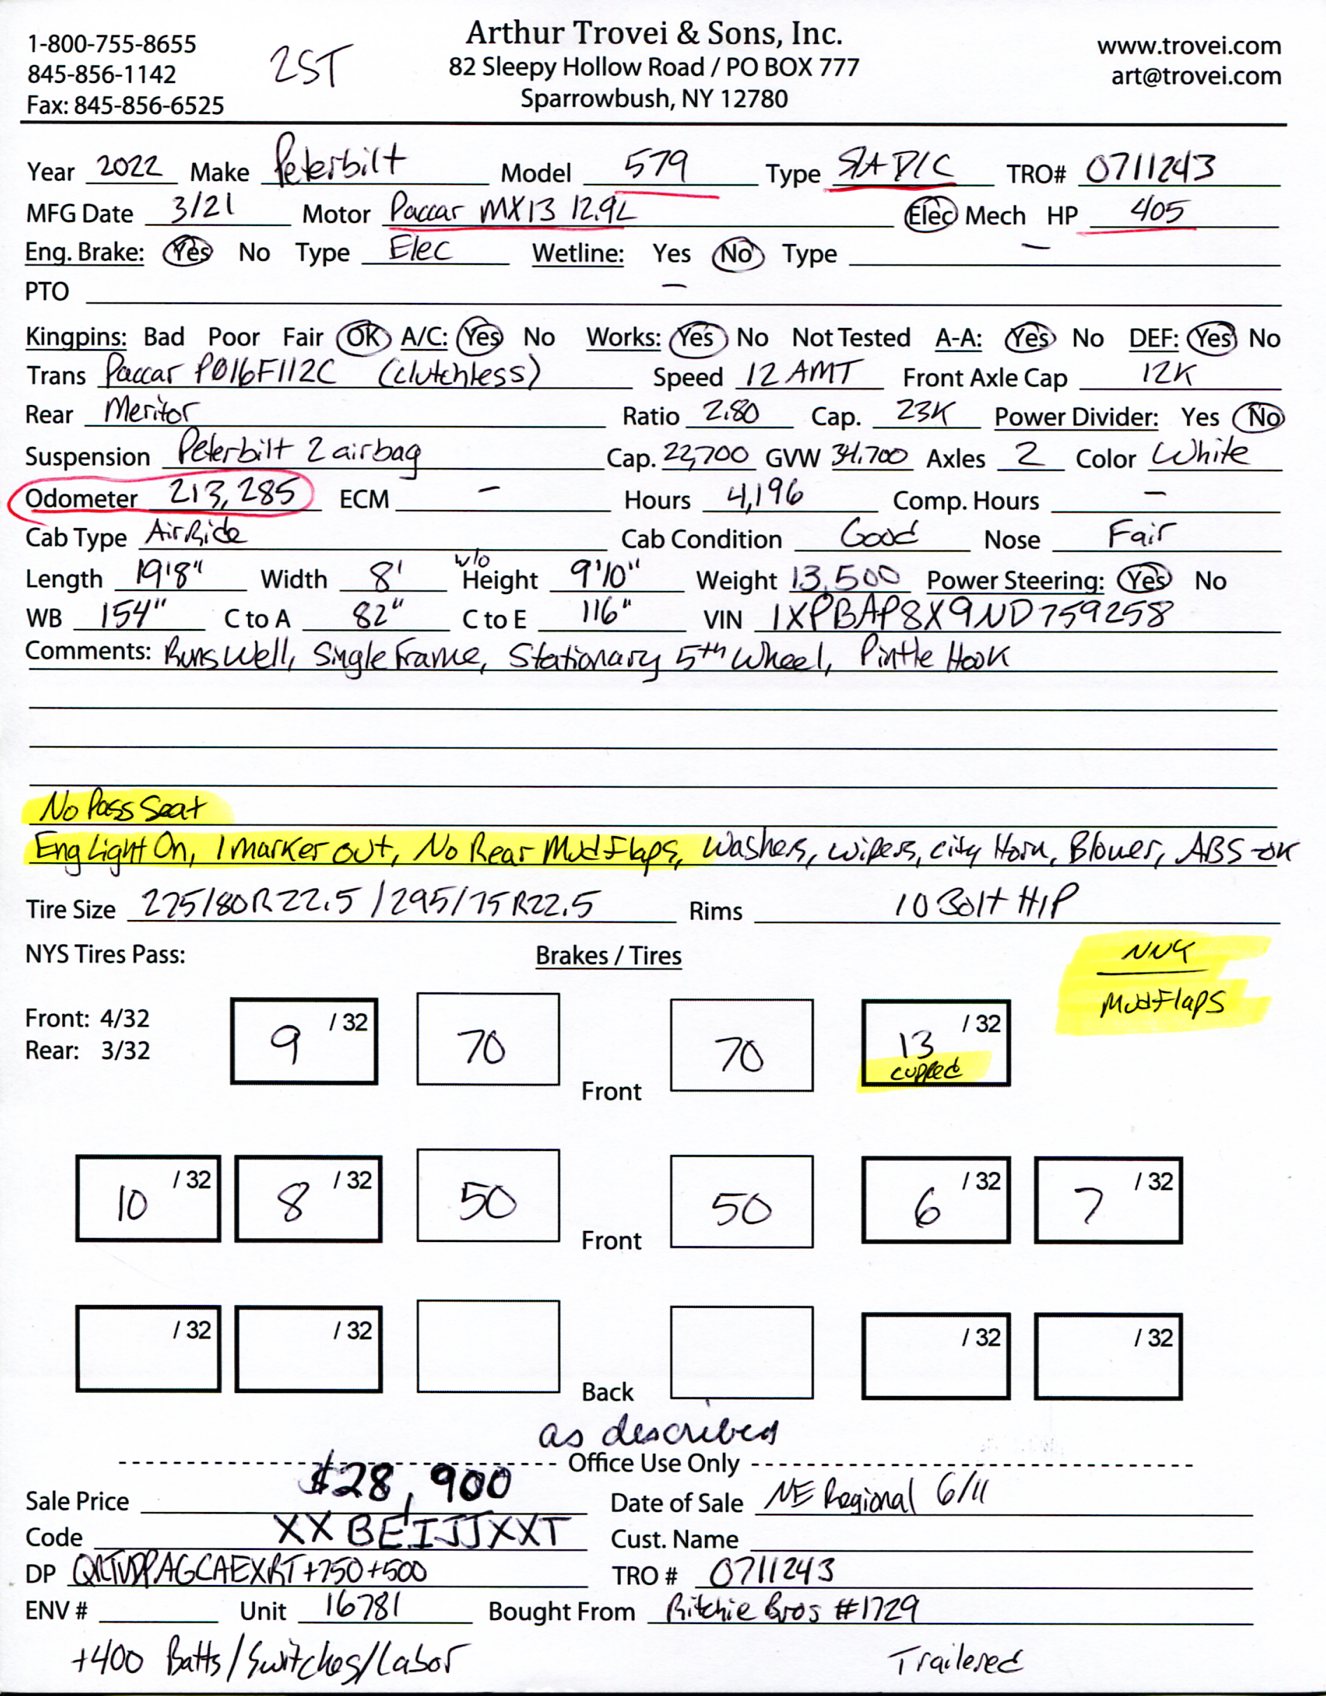 Arthur Trovei & Sons, Inc.
1-800-755-8655 2ST 82 Sleepy Hollow Road / PO BOX 777 www.trovei.com
845-856-1142 Sparrowbush, NY 12780 art@trovei.com
Fax: 845-856-6525
Year 2022 Make Peterbilt Model 579 Type S/A D/C TRO# 0711243
MFG Date 3/21 Motor Paccar MX13 12.9L Elec Mech HP 405
Eng. Brake: Yes No Type Elec Wetline: Yes No Type —
PTO —
Kingpins: Bad Poor Fair OK A/C: Yes No Works: Yes No Not Tested A-A: Yes No DEF: Yes No
Trans Paccar PO16F112C (Clutchless) Speed 12 AMT Front Axle Cap 12K
Rear Meritor Ratio 2.80 Cap. 23K Power Divider: Yes No
Suspension Peterbilt 2 airbag Cap. 22,700 GVW 34,700 Axles 2 Color White
Odometer 213,285 ECM — Hours 4,196 Comp. Hours —
Cab Type AirRide Cab Condition Good Nose Fair
Length 19'8" Width 8' w/o Height 9'10" Weight 13,500 Power Steering: Yes No
WB 154" C to A 82" C to E 116" VIN 1XPBAP8X9ND759258
Comments: Runs Well, Single Frame, Stationary 5th Wheel, Pintle Hook
No Pass Seat
Eng Light On, 1 marker out, No Rear Mud Flaps, Washers, wipers, city Horn, Blower, ABS-OK
Tire Size 275/80R22.5 / 295/75R22.5 Rims 10 Bolt H/P
NYS Tires Pass: Brakes / Tires NNY
MudFlaps
Front: 4/32 9 /32 70 70 13 /32
Rear: 3/32 cupped
Front
10 /32 8 /32 50 50 6 /32 7 /32
Front
/32 /32 /32 /32
Back
as described
Office Use Only
Sale Price $28,900 Date of Sale NE Regional 6/11
Code XXBEIJJXXT Cust. Name
DP +750+500 TRO # 0711243
ENV # Unit 16781 Bought From Ritchie Bros #1729
+400 Batts/Switches/Labor Trailered